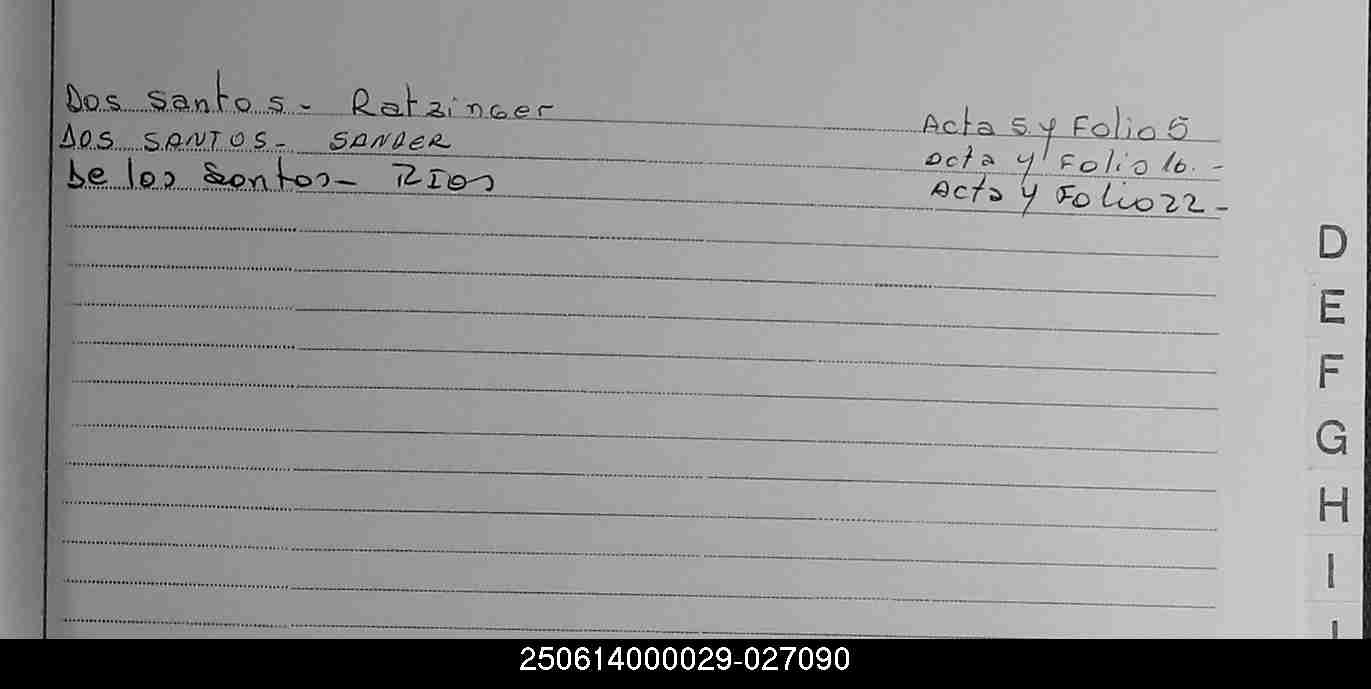 Dos Santos - Ratzinger Acta 5 y Folio 5
DOS SANTOS - SANDER Acta y Folio 16. -
De los Santos - RIOS Acta y Folio 22 -
D
E
F
G
H
I
250614000029-027090